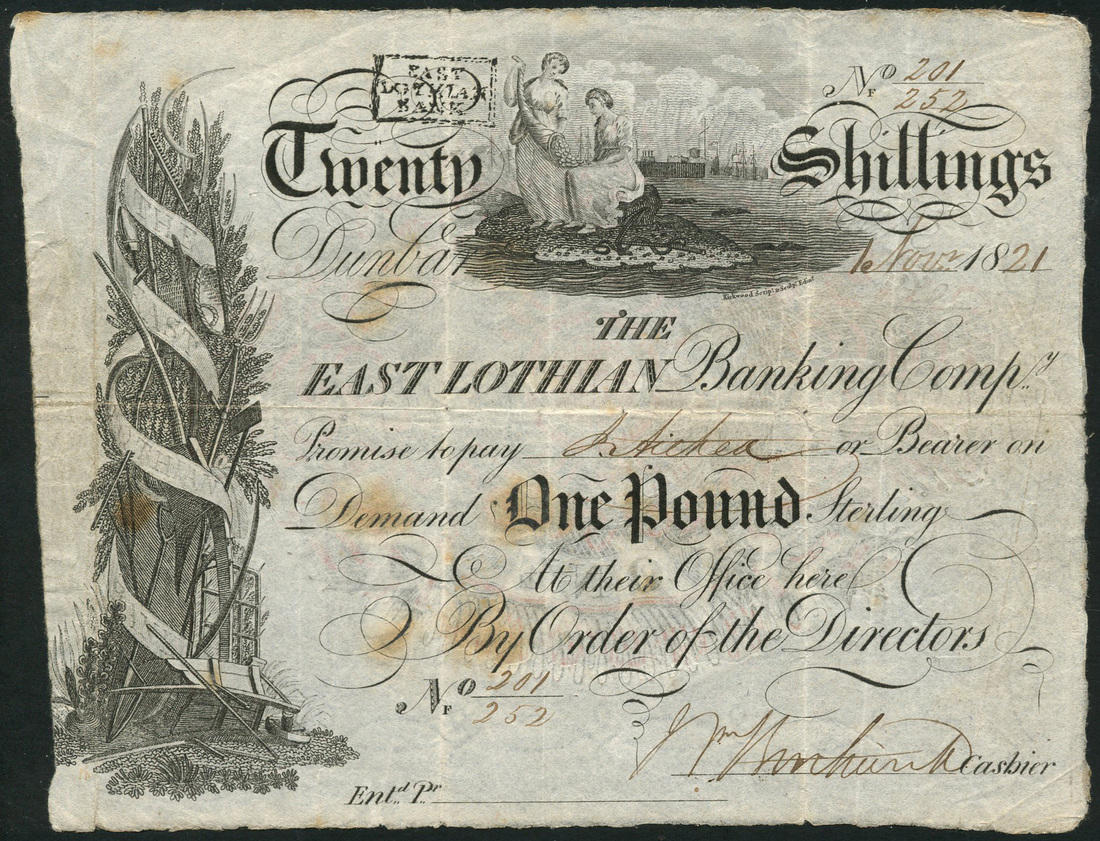 EAST
LOTHIAN
BANK
No 201
F 252
Twenty Shillings
Dunbar 1 Novr. 1821
Kirkwood Script. & Sculpt. Edinr.
THE
EAST LOTHIAN Banking Compy.
Promise to pay J. Aitken or Bearer on
Demand One Pound Sterling
At their Office here
By Order of the Directors
No 201
F 252
Cashier
Entd. Pr.